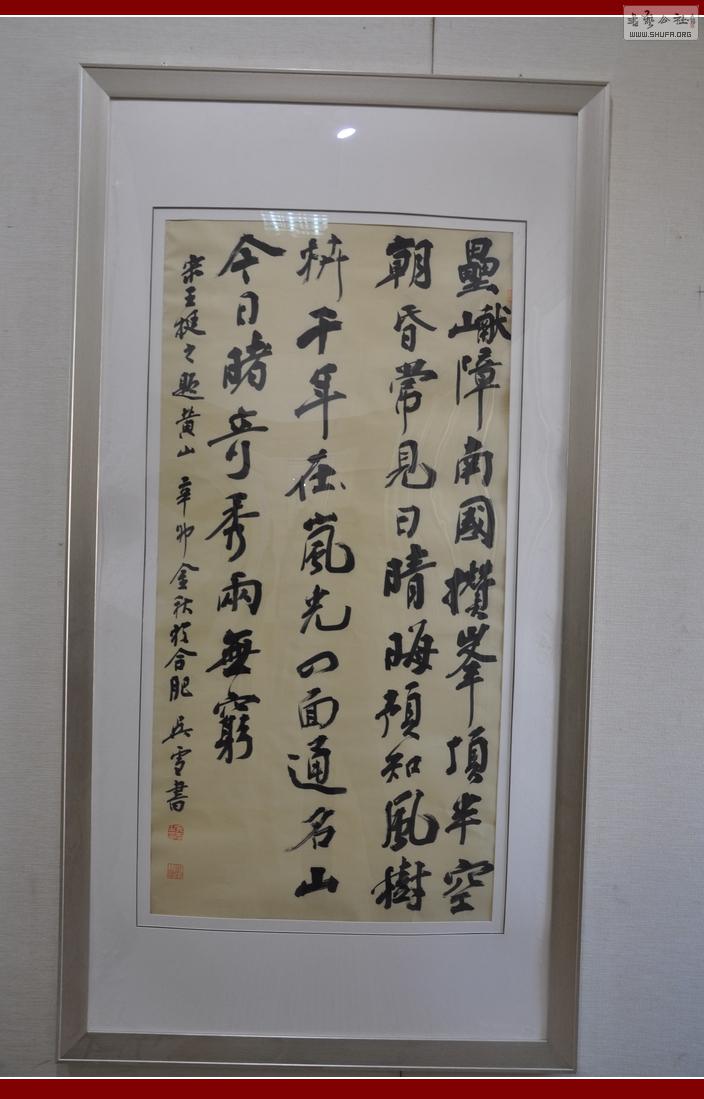 壘巘障南國攢峯頂半空
朝昏常見日晴晦預知風樹
枿千年在嵐光四面通名山
今日睹奇秀兩無窮
宋王挺之題黃山 辛卯金秋於合肥 吳雪書
书艺公社
WWW.SHUFA.ORG